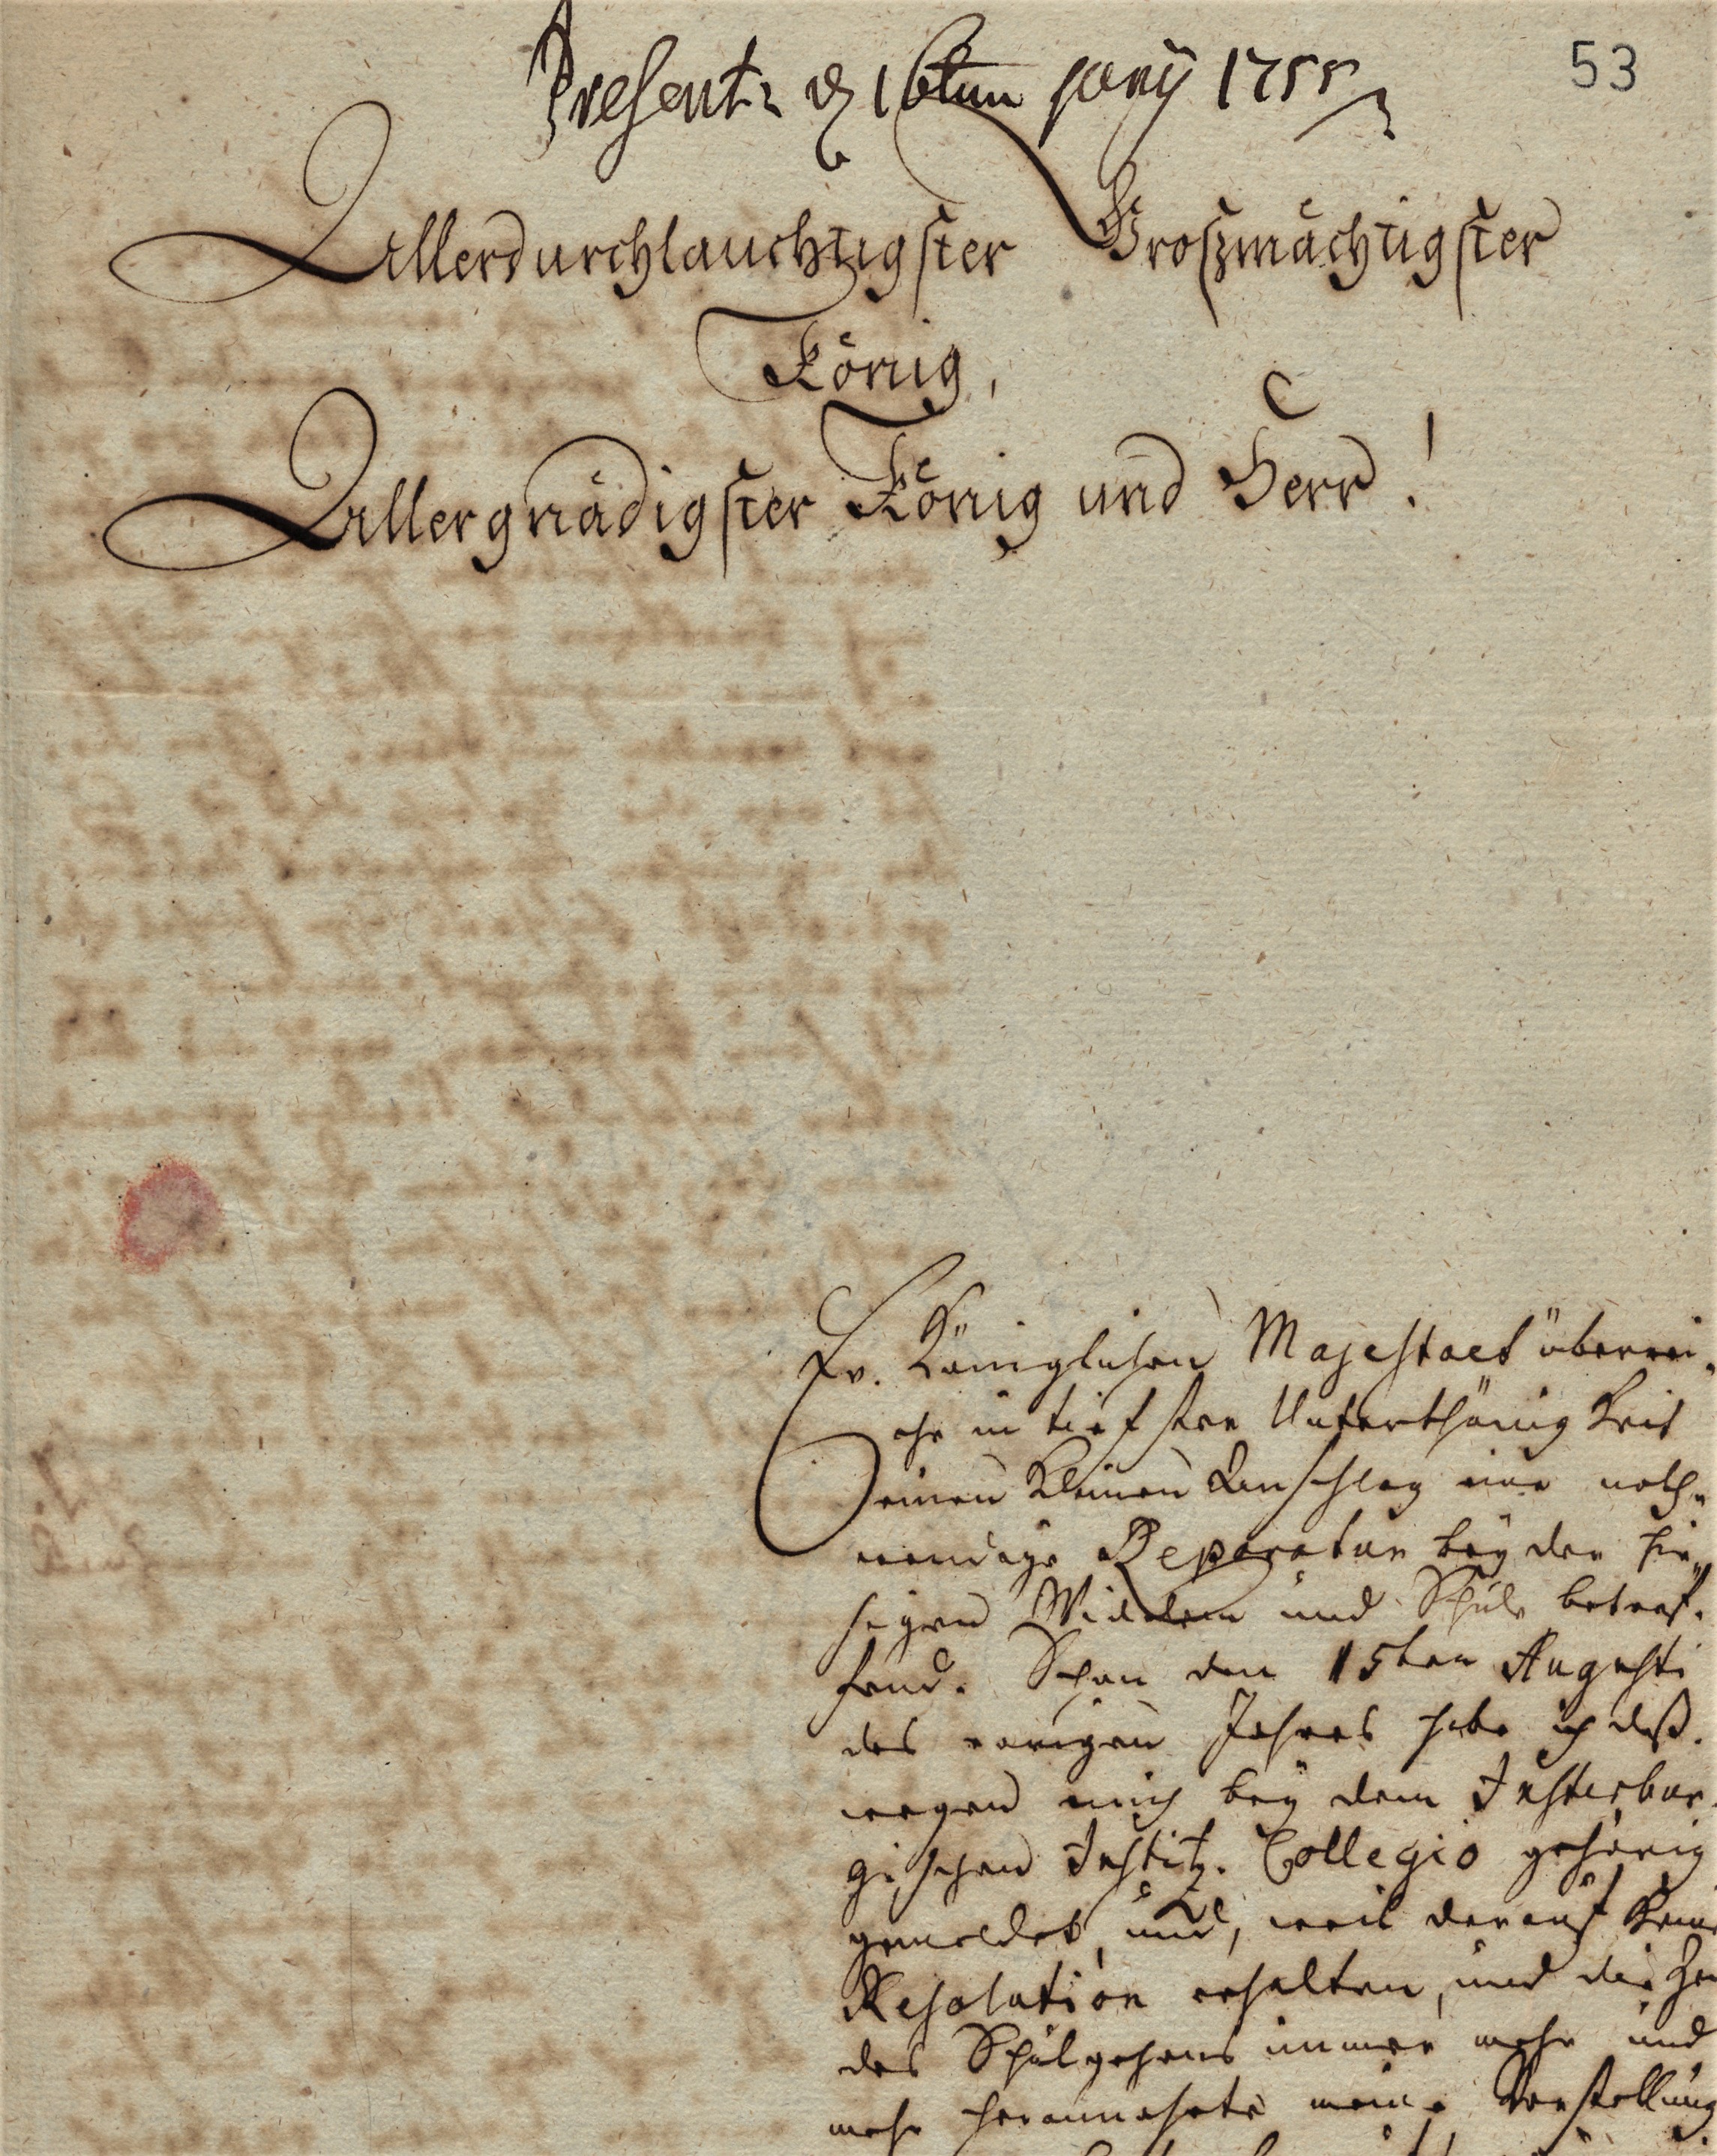 53
Present. d 16ten Janÿ 1755
Allerdurchlauchtigster Großmächtigster
König,
Allergnädigster König und Herr!
Ew. Königlichen Majestaet überrei-
che in tiefster Unterthänigkeit
einen kleinen Anschlag eine noth-
wendige Reparatur beÿ der hie-
sigen Widdem und Schule betref-
fend. Schon den 15ten Augusti
des vorigen Jahres habe ich deß-
wegen mich beÿ dem Insterbur-
gischen Justitz-Collegio gehörig
gemeldet, und, weil darauf keine
Resolution erhalten, und die
des Schulgehens immer mehr und
mehr herannahete meine Vorstellung